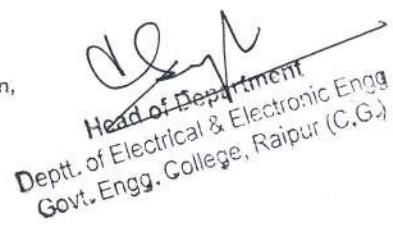 n,
Head of Department
Deptt. of Electrical & Electronic Engg
Govt. Engg. College, Raipur (C.G.)